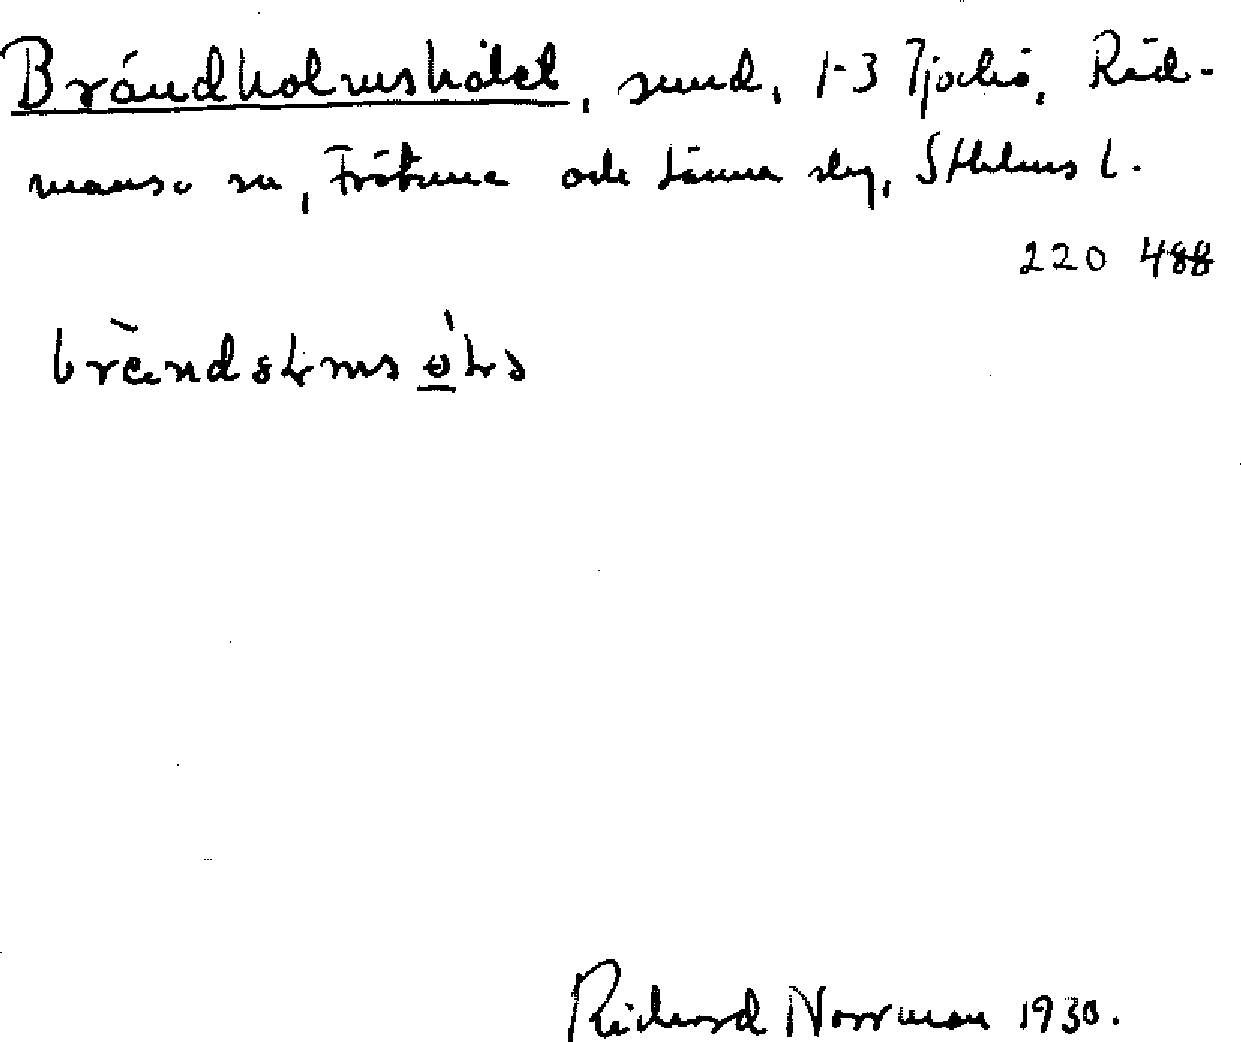 Brändholmshålet, sund, 1-3 Tjockö, Råd-
manso sn, Frötuna och Länna slg, Sthlms l.
220 488
Richard Norrman 1930.